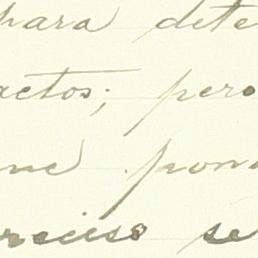 para dete
actos; pero
ne pon
preciso se